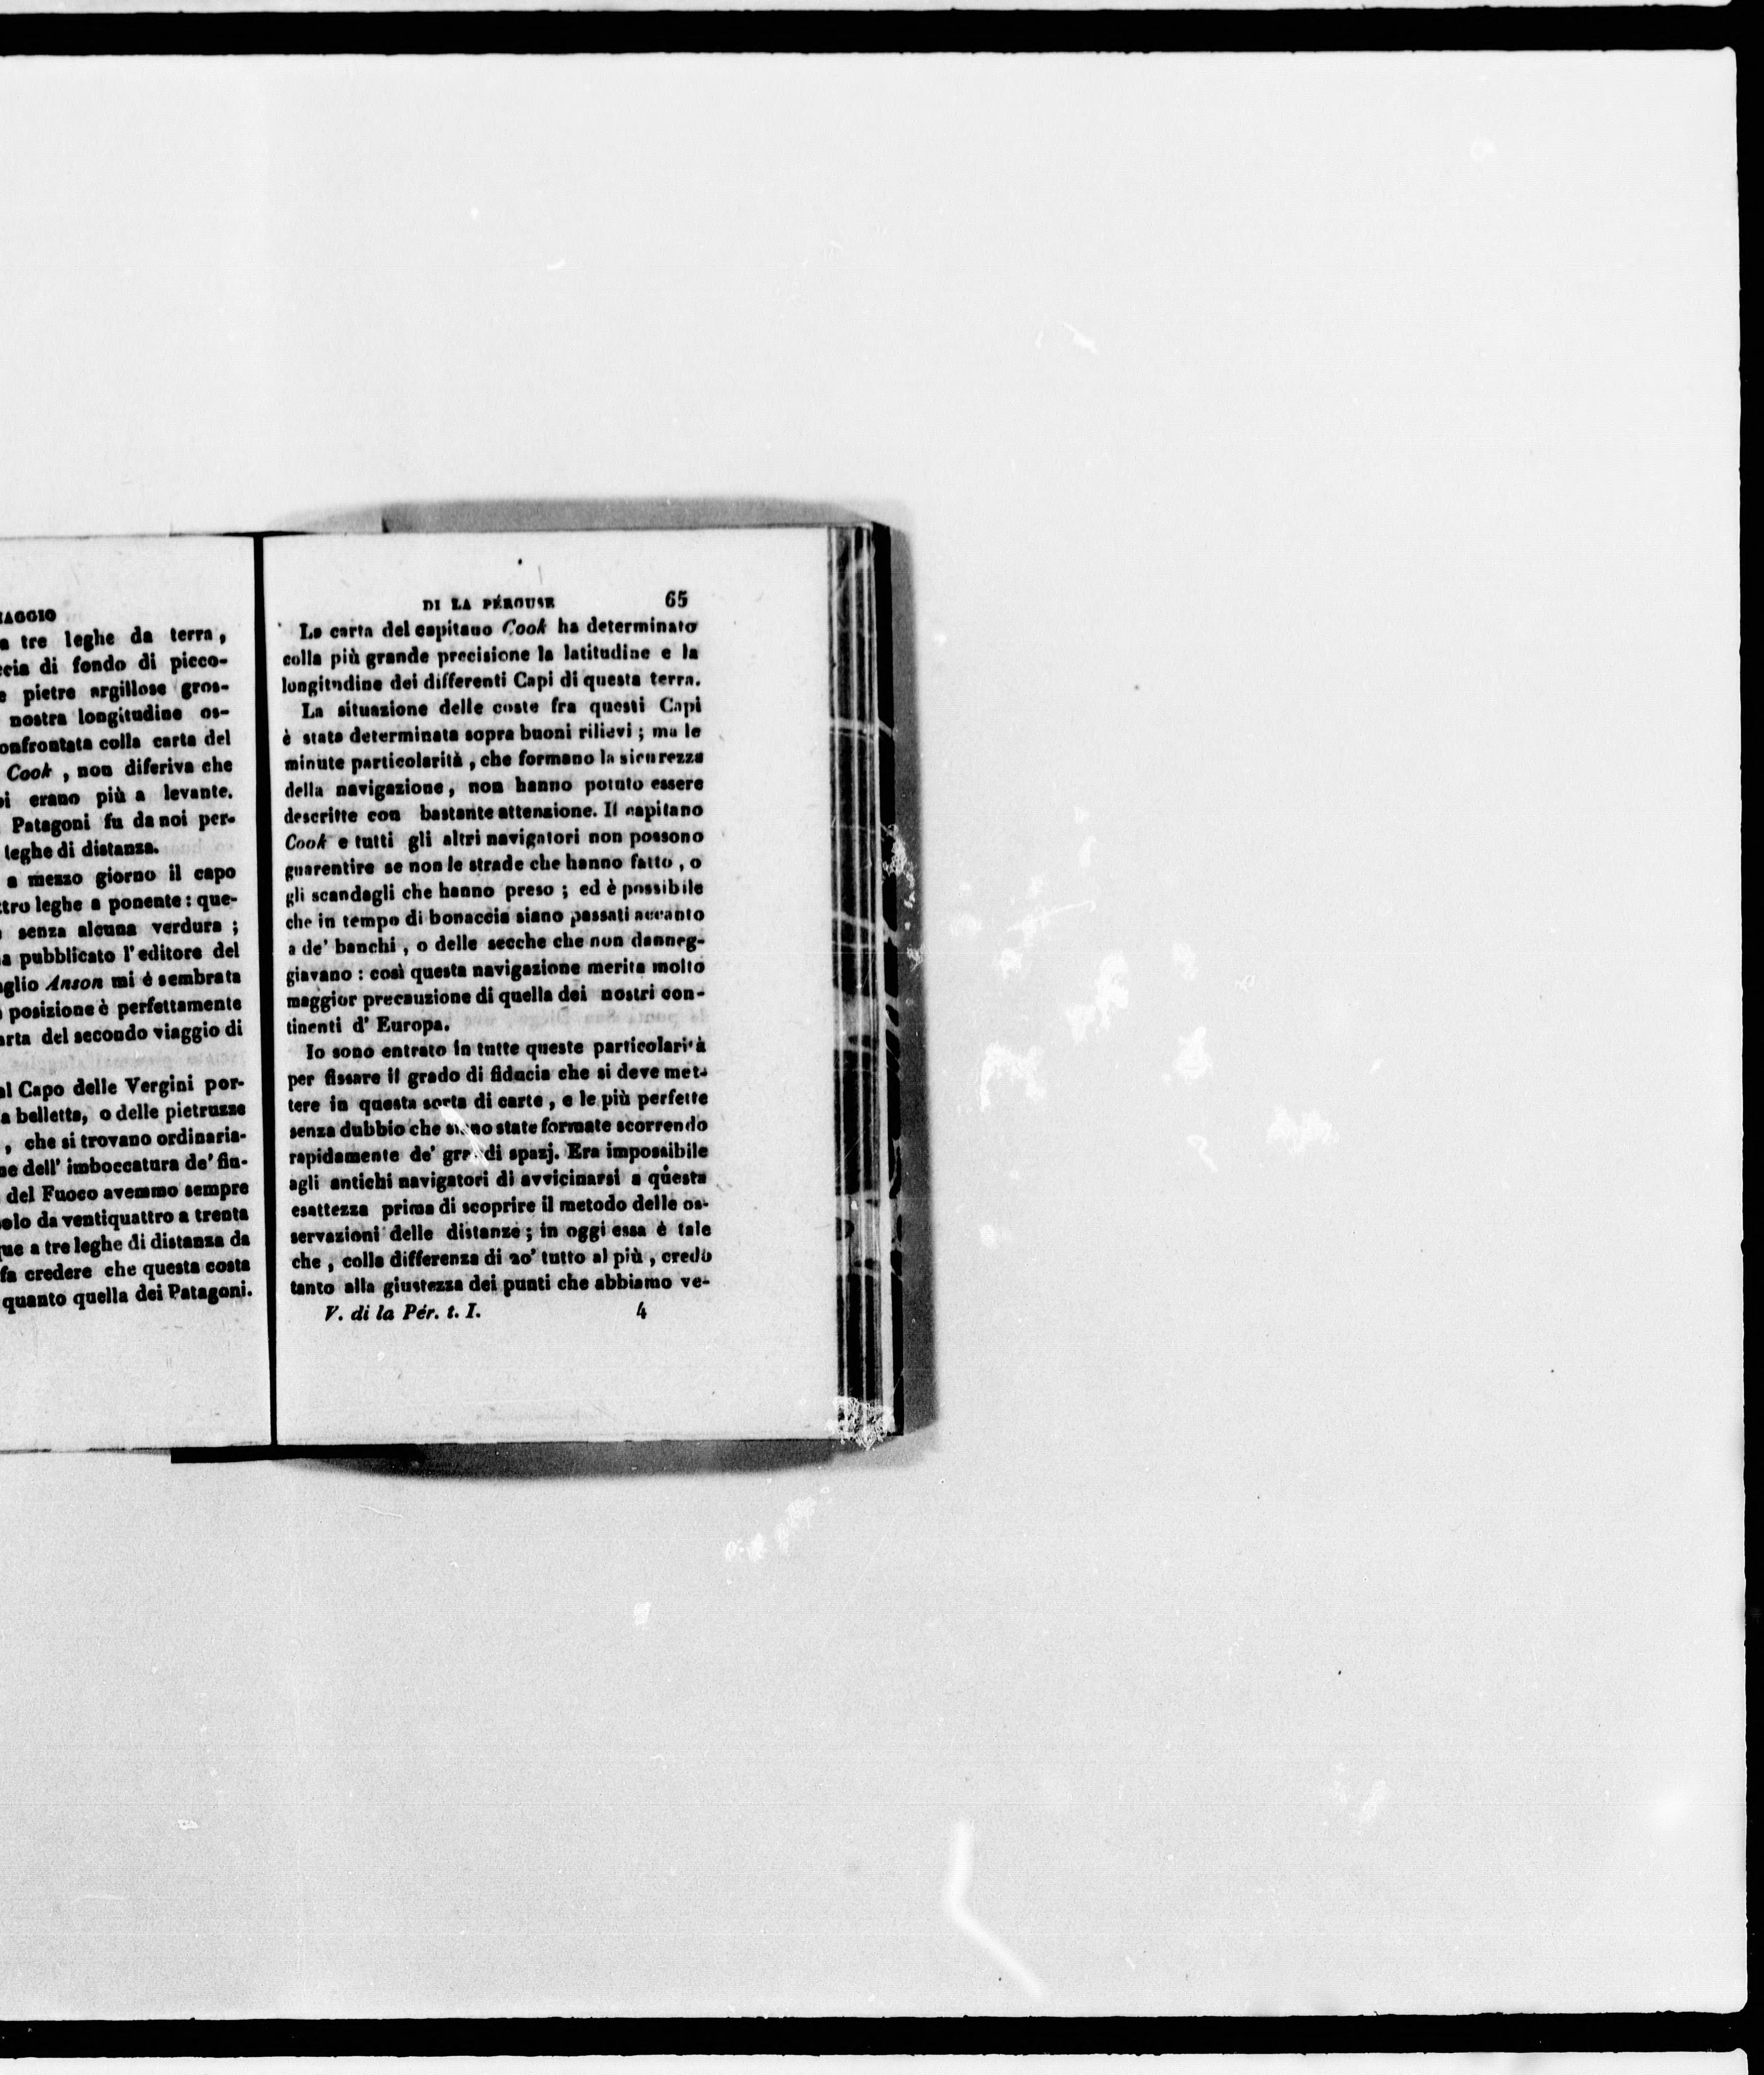 AGGIO
a tre leghe da terra,
ccia di fondo di picco-
e pietre argillose gros-
nostra longitudine os-
onfrontata colla carta del
Cook, non diferiva che
oi erano più a levante.
Patagoni fu da noi per-
leghe di distanza.
a mezzo giorno il capo
ttro leghe a ponente: que-
senza alcuna verdura;
a pubblicato l'editore del
aglio Anson mi è sembrata
posizione è perfettamente
arta del secondo viaggio di
al Capo delle Vergini por-
a belletta, o delle pietruzze
, che si trovano ordinaria-
ne dell' imboccatura de' fiu-
del Fuoco avemmo sempre
olo da ventiquattro a trenta
que a tre leghe di distanza da
fa credere che questa costa
quanto quella dei Patagoni.
DI LA PÉROUSE 65
La carta del capitano Cook ha determinato
colla più grande precisione la latitudine e la
longitudine dei differenti Capi di questa terra.
La situazione delle coste fra questi Capi
è stata determinata sopra buoni rilievi; ma le
minute particolarità, che formano la sicurezza
della navigazione, non hanno potuto essere
descritte con bastante attenzione. Il capitano
Cook e tutti gli altri navigatori non possono
guarentire se non le strade che hanno fatto, o
gli scandagli che hanno preso; ed è possibile
che in tempo di bonaccia siano passati accanto
a de' banchi, o delle secche che non danneg-
giavano: così questa navigazione merita molto
maggior precauzione di quella dei nostri con-
tinenti d' Europa.
Io sono entrato in tutte queste particolarità
per fissare il grado di fiducia che si deve met-
tere in questa sorta di carte, e le più perfette
senza dubbio che siano state formate scorrendo
rapidamente de' grandi spazj. Era impossibile
agli antichi navigatori di avvicinarsi a questa
esattezza prima di scoprire il metodo delle os-
servazioni delle distanze; in oggi essa è tale
che, colla differenza di 20' tutto al più, credo
tanto alla giustezza dei punti che abbiamo ve-
V. di la Pér. t. I. 4